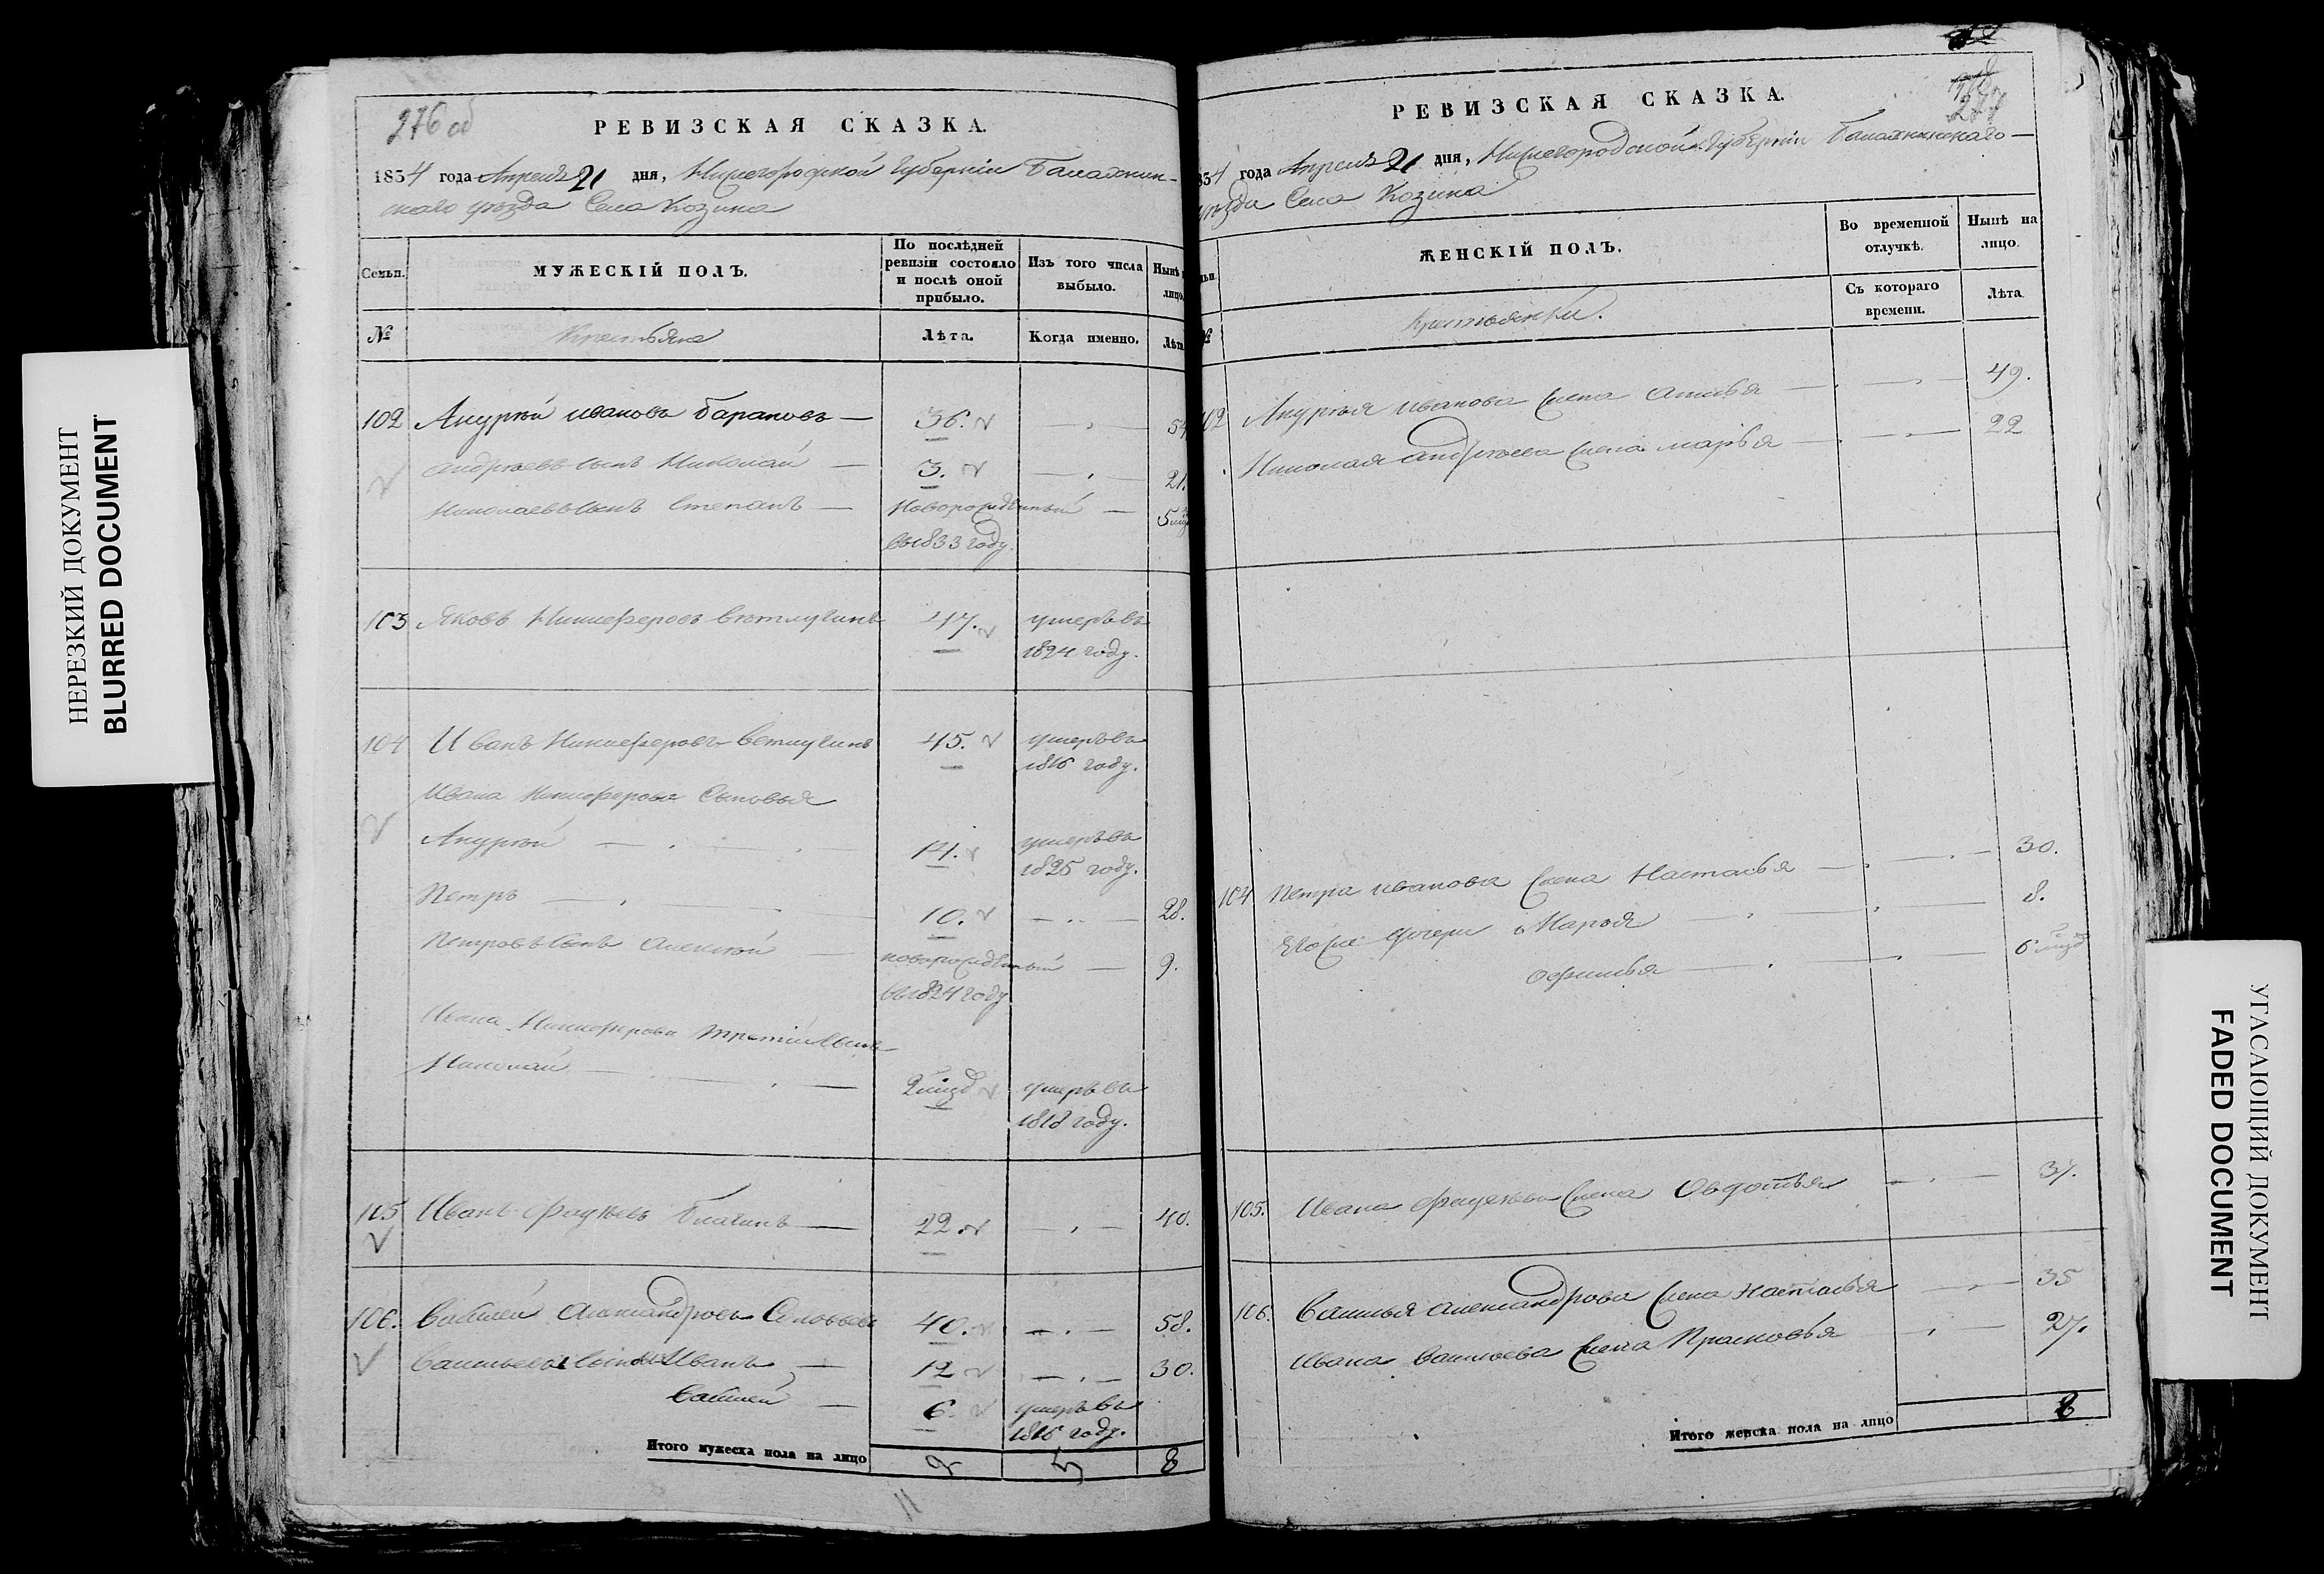 НЕРЕЗКИЙ ДОКУМЕНТ
BLURRED DOCUMENT
276 об
РЕВИЗСКАЯ СКАЗКА.
1834 года Апреля 21 дня, Нижегородской Губернии Балахнин-
скаго уезда Села Козина
Семьи.
МУЖЕСКІЙ ПОЛЪ.
По послѣдней ревизіи состояло и послѣ оной прибыло.
Изъ того числа выбыло.
Нынѣ лицо
№
Крестьяна
Лѣта.
Когда именно.
Лѣта
102 Андрей Иванов Баранов — 36. 54
Андреевъ сынъ Николай — 3. 21.
Николаевъ сынъ Степанъ — Новорожденный — 5
въ 1833 году.
103 Яковъ Никифоровъ Ветлугинъ 47. умеръ въ
1824 году.
104 Иванъ Никифоровъ Ветлугинъ 45. умеръ въ
1816 году.
Ивана Никифорова Сыновья
Андрей 14. умеръ въ
1825 году.
Петръ 10. 28.
Петровъ сынъ Алексей — новорожденный — 9.
въ 1824 году
Ивана Никифорова третій сынъ
Николай умеръ въ
1818 году.
105 Иванъ 22. 40.
106. Василей Александровъ Соловьевъ 40. 58.
Васильевы сыновья Иванъ 12 30.
Василей 6. умеръ въ
1816 году.
Итого мужеска пола на лицо 5 8
11
РЕВИЗСКАЯ СКАЗКА.
834 года Апреля 21 дня, Нижегородской Губернии Балахнинскаго
уезда Села Козина
ЖЕНСКІЙ ПОЛЪ.
Во временной отлучкѣ.
Нынѣ на лицо.
№
Крестьянки.
Съ котораго времени.
Лѣта.
102 Андрея Иванова жена 49.
Николая Андреева жена Марья 22
104 Петра Иванова жена Настасья 30.
Его же дочери Марья 8.
Офимья 6
105. Ивана жена Овдотья 37.
106. Василья Александрова жена Настасья 35
Ивана Васильева жена Прасковья 27.
Итого женска пола на лицо 8
УГАСАЮЩИЙ ДОКУМЕНТ
FADED DOCUMENT